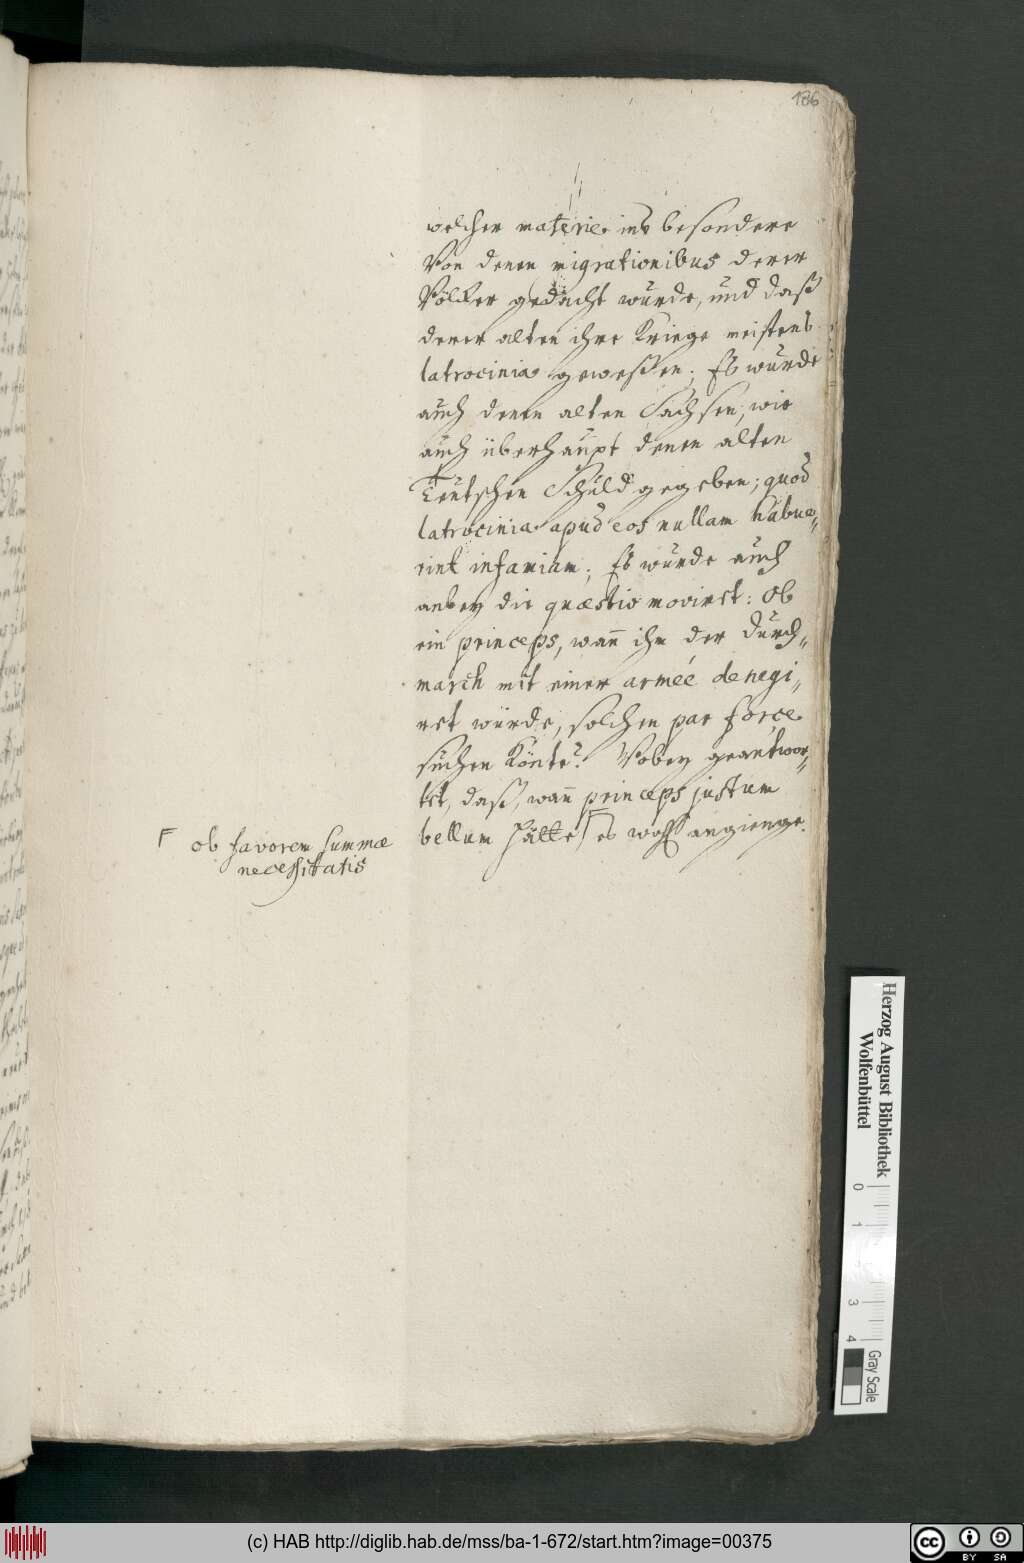 186
welcher materie ins besondere
Von denen migrationibus derer
Völker gedacht wurde, und daß
derer alten ihre Kriege meistens
latrocinia geweßen; Es wurde
auch denen alten Sachsen, wie
auch überhaupt denen alten
Teutschen Schuld gegeben; quod
latrocinia apud eos nullam habue„
rint infamiam; Es wurde auch
anbey die quæstio moviret: Ob
ein princeps, wañ ihm der durch„
march mit einer armée denegi„
ret würde, solchen par force
suchen Könte? Wobey geantwor„
tet, daß, wañ princeps justum
bellum hätte, ⌈ es wohl angienge.
⌈ ob favorem summæ
necessitatis
Herzog August Bibliothek
Wolfenbüttel
0 1 3 4
Gray Scale
(c) HAB http://diglib.hab.de/mss/ba-1-672/start.htm?image=00375
cc BY SA